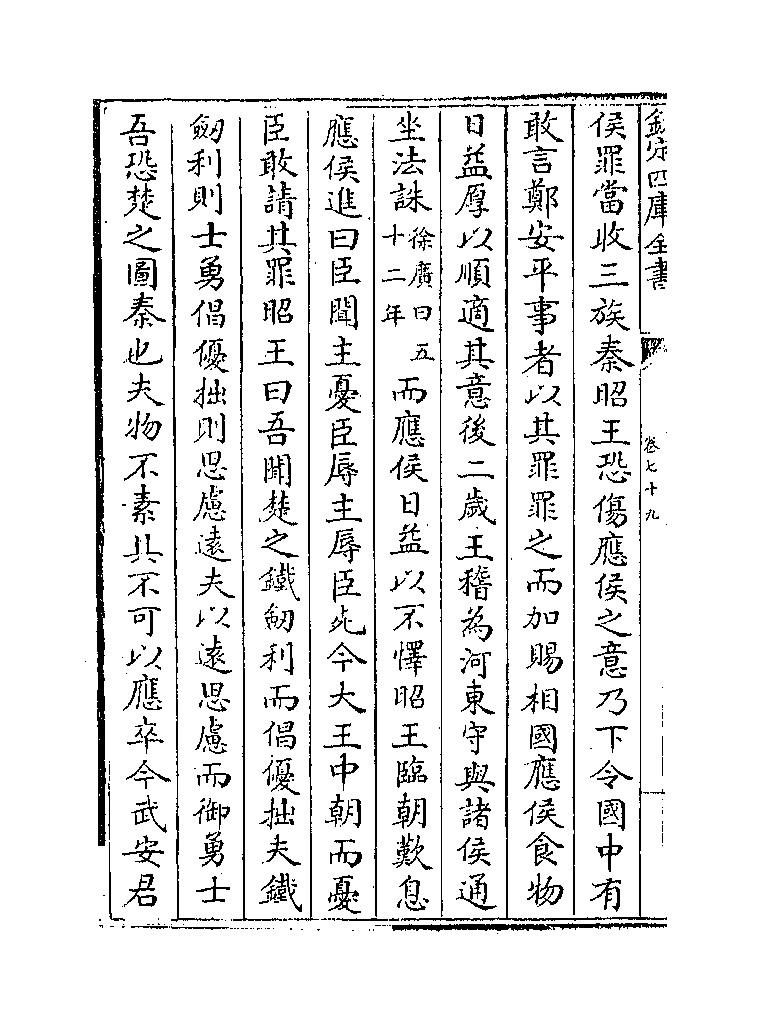 欽定四庫全書
卷七十九
侯罪當收三族秦昭王恐傷應侯之意乃下令國中有
敢言鄭安平事者以其罪罪之而加賜相國應侯食物
日益厚以順適其意後二歲王稽為河東守與諸侯通
坐法誅徐廣曰五十二年而應侯日益以不懌昭王臨朝歎息
應侯進曰臣聞主憂臣辱主辱臣死今大王中朝而憂
臣敢請其罪昭王曰吾聞楚之鐵劒利而倡優拙夫鐵
劒利則士勇倡優拙則思慮遠夫以遠思慮而御勇士
吾恐楚之圖秦也夫物不素具不可以應卒今武安君